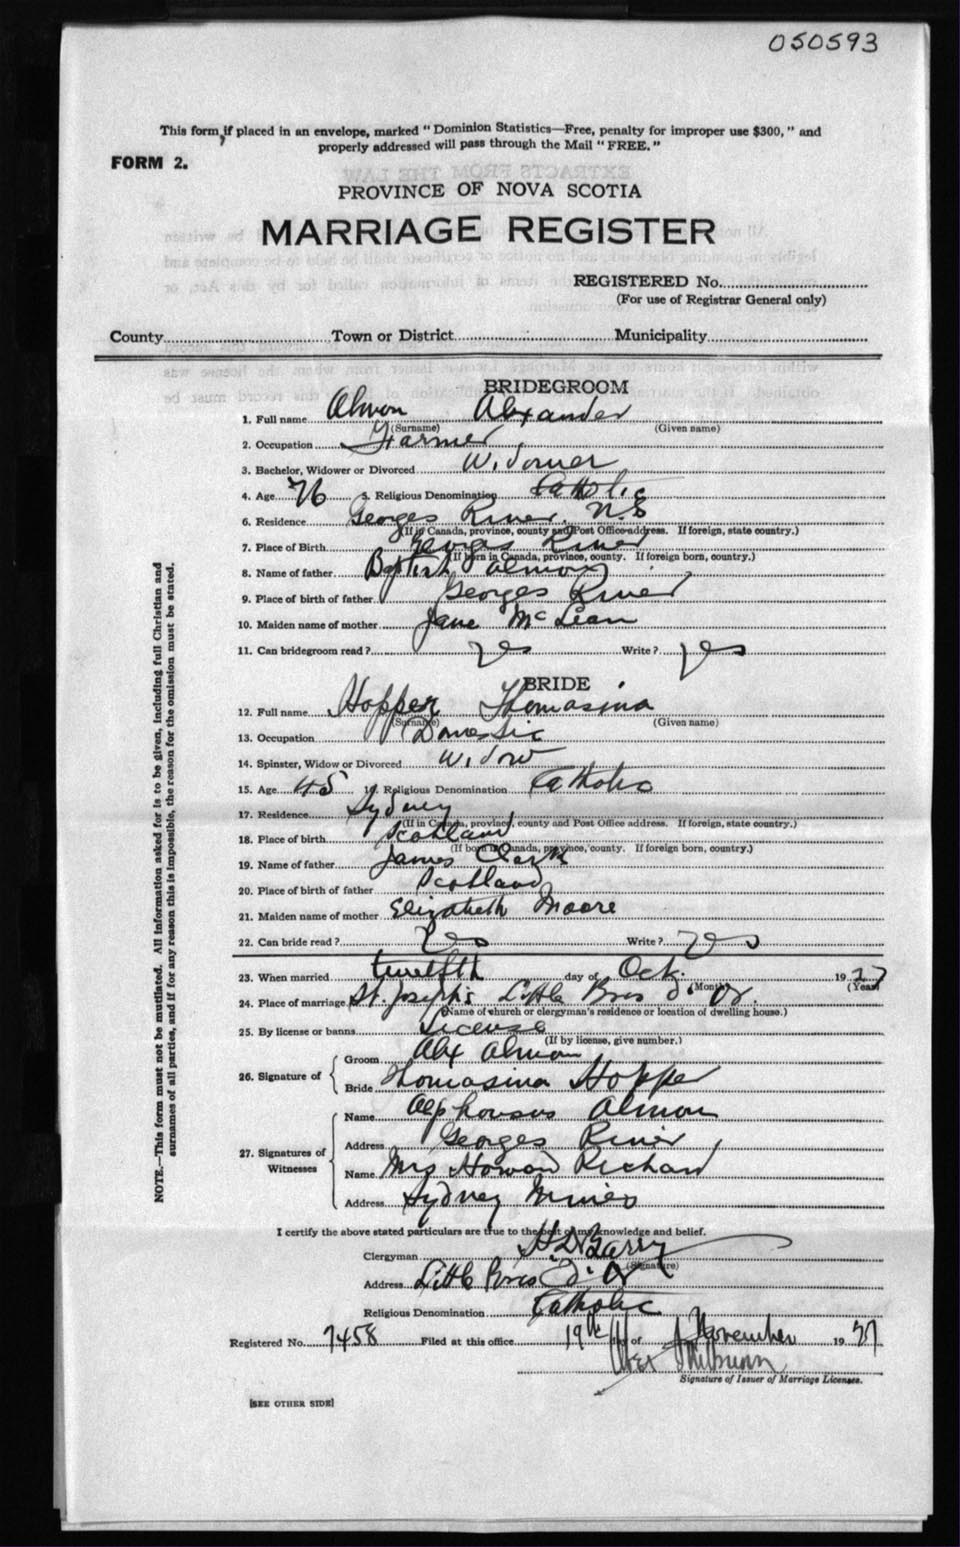 050593
This form, if placed in an envelope, marked "Dominion Statistics—Free, penalty for improper use $300," and
properly addressed will pass through the Mail "FREE."
FORM 2.
PROVINCE OF NOVA SCOTIA
MARRIAGE REGISTER
REGISTERED No.
(For use of Registrar General only)
County Town or District Municipality
BRIDEGROOM
1. Full name Almon Alexander
(Surname) (Given name)
2. Occupation Farmer
3. Bachelor, Widower or Divorced Widower
4. Age 76 5. Religious Denomination Catholic
6. Residence Georges River, N.S
(If in Canada, province, county and Post Office address. If foreign, state country.)
7. Place of Birth Georges River
(If born in Canada, province, county. If foreign born, country.)
8. Name of father Baptist Almon
9. Place of birth of father Georges River
10. Maiden name of mother Jane McLean
11. Can bridegroom read? yes Write? yes
BRIDE
12. Full name Hopper Thomasina
(Surname) (Given name)
13. Occupation Domestic
14. Spinster, Widow or Divorced Widow
15. Age 45 16. Religious Denomination Catholic
17. Residence Sydney
(If in Canada, province, county and Post Office address. If foreign, state country.)
18. Place of birth Scotland
(If born in Canada, province, county. If foreign born, country.)
19. Name of father James Clark
20. Place of birth of father Scotland
21. Maiden name of mother Elizabeth Moore
22. Can bride read? Yes Write? yes
23. When married twelfth day of Oct. 1927
(Month) (Year)
24. Place of marriage St. Joseph's Little Bras d'Or.
(Name of church or clergyman's residence or location of dwelling house.)
25. By license or banns License
(If by license, give number.)
26. Signature of
Groom Alex Almon
Bride Thomasina Hopper
27. Signatures of Witnesses
Name Alphonsus Almon
Address Georges River
Name Mrs Howard Richard
Address Sydney Mines
I certify the above stated particulars are true to the best of my knowledge and belief.
Clergyman H D Barry
(Signature)
Address Little Bras d'Or
Religious Denomination Catholic
Registered No. 7458 Filed at this office 19th day of November 1927
Signature of Issuer of Marriage Licenses.
[SEE OTHER SIDE]
NOTE.—This form must not be mutilated. All information asked for is to be given, including full Christian and
surnames of all parties, and if for any reason this is impossible, the reason for the omission must be stated.